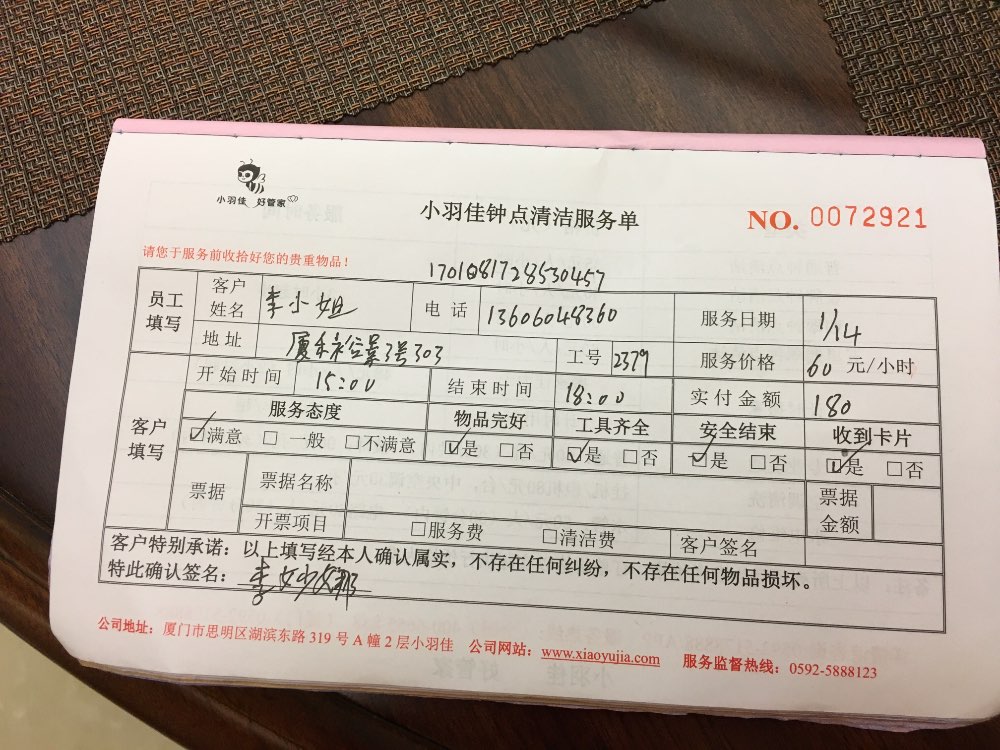 小羽佳 好管家
小羽佳钟点清洁服务单
NO. 0072921
请您于服务前收拾好您的贵重物品！
1701081728530457
员工填写 客户姓名 李小姐 电话 13606048360 服务日期 1/14
地址 3号303 工号 2379 服务价格 60 元/小时
客户填写 开始时间 15:00 结束时间 18:00 实付金额 180
服务态度 物品完好 工具齐全 安全结束 收到卡片
☑满意 □一般 □不满意 ☑是 □否 ☑是 □否 ☑是 □否 ☑是 □否
票据 票据名称 票据金额
开票项目 □服务费 □清洁费 客户签名
客户特别承诺：以上填写经本人确认属实，不存在任何纠纷，不存在任何物品损坏。
特此确认签名：李
公司地址：厦门市思明区湖滨东路 319 号 A 幢 2 层小羽佳 公司网站：www.xiaoyujia.com 服务监督热线：0592-5888123